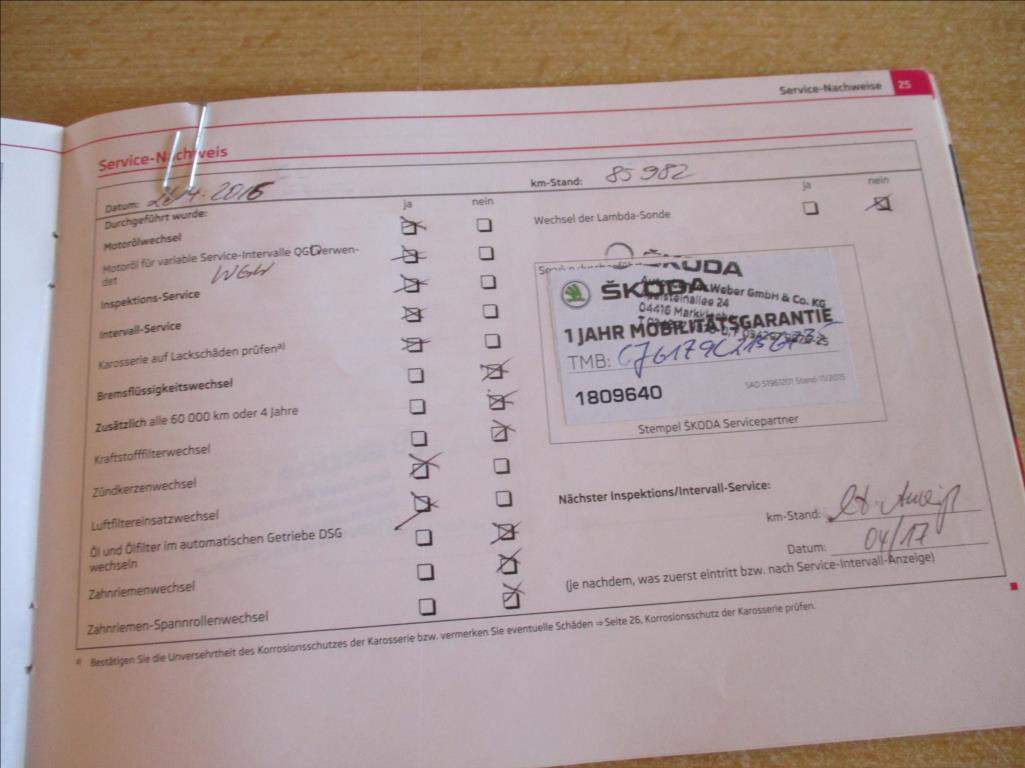 Service-Nachweise 25
Service-Nachweis
Datum: 2016
km-Stand: 85 982
Durchgeführt wurde: ja nein
ja nein
Motorölwechsel
Wechsel der Lambda-Sonde
Motoröl für variable Service-Intervalle QG verwen-
det
Inspektions-Service
Intervall-Service
Karosserie auf Lackschäden prüfen a)
Bremsflüssigkeitswechsel
Zusätzlich alle 60 000 km oder 4 Jahre
Kraftstofffilterwechsel
Zündkerzenwechsel
Luftfiltereinsatzwechsel
Öl und Ölfilter im automatischen Getriebe DSG
wechseln
Zahnriemenwechsel
Zahnriemen-Spannrollenwechsel
ŠKODA
Weber GmbH & Co. KG
04416
ŠKODA
1 JAHR MOBILITÄTSGARANTIE
TMB:
1809640
SAD 51961201 Stand: 11/2015
Stempel ŠKODA Servicepartner
Nächster Inspektions/Intervall-Service:
km-Stand:
Datum: 04/17
(je nachdem, was zuerst eintritt bzw. nach Service-Intervall-Anzeige)
a) Bestätigen Sie die Unversehrtheit des Korrosionsschutzes der Karosserie bzw. vermerken Sie eventuelle Schäden ⇒ Seite 26, Korrosionsschutz der Karosserie prüfen.